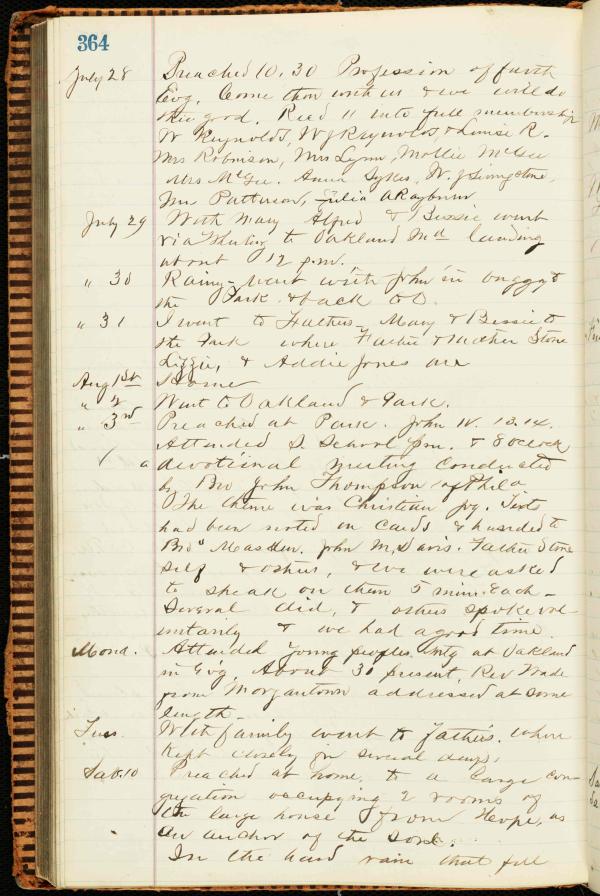 364
July 28 Preached 10.30 Profession of faith
Evg. Come thou with us & we will do
thee good. Recd 11 into full membership
W Reynolds, W J Reynolds & Louise R.
Mrs Robinson, Mrs Lynn, Mollie McGee
Mrs McGee. Anna Sykes, W. J Livingstone,
Mrs Patterson, Julia A Rayburn
July 29 With Mary Alfred & Bessie went
via to Oakland Md landing
about 12 p.m.
" 30 Rainy - went with John in buggy to
the Park & back to O.
" 31 I went to Fathers - Mary & Bessie to
the Park where Father & Mother Stone
Lizzie, & Addie Jones are
Aug 1st Home
" 2 Went to Oakland & Park.
" 3rd Preached at Park. John IV. 13.14.
Attended S School pm. & 8 oclock
a devotional meeting conducted
by Bro John Thompson of Phila
The theme was Christian joy. Texts
had been noted on cards & handed to
Bros Masden. John M. Davis. Father Stone
self & others, & we were asked
to speak on them 5 min. Each -
Several did, & others spoke vol-
untarily & we had a good time.
Mond. Attended young peoples mtg at Oakland
in Evg. About 30 present, Rev Wade
from Morgantown addressed at some
length -
Tues. With family went to fathers. where
kept closely for several days.
Sab. 10 Preached at home, to a large con-
gregation occupying 2 rooms of
the large house from Hope, as
an anchor of the soul.
In the hard rain that fell